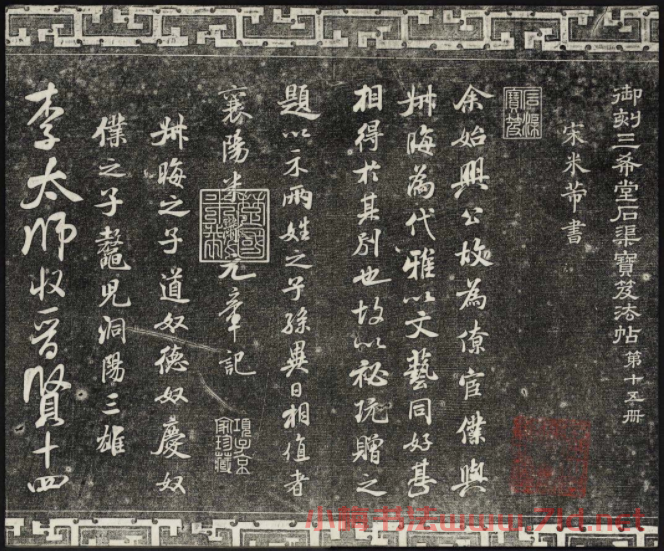 御刻三希堂石渠寶笈法帖第十五册
宋米芾書
石渠寶笈
余始興公故為僚宦僕與
叔晦為代雅以文藝同好甚
相得於其別也故以祕玩贈之
題以示兩姓之子孫異日相值者
襄陽米元章記
項子京家珍藏
叔晦之子道奴德奴慶奴
僕之子鼇兒洞陽三雄
李太師收晉賢十四
书法www.7ld.net